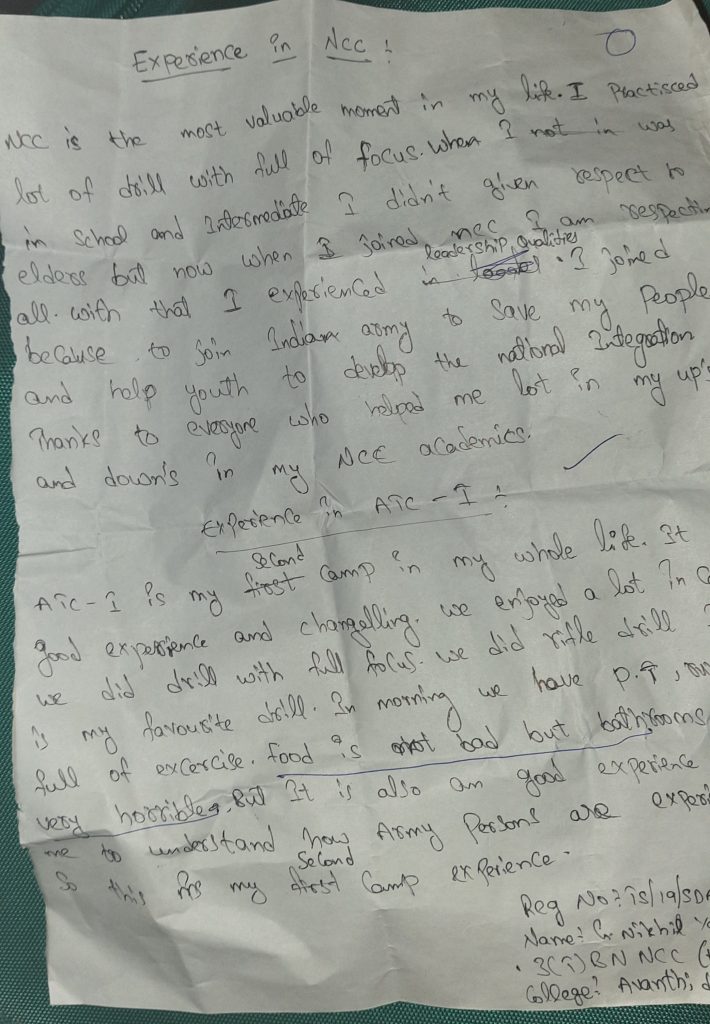 Experience in NCC :
NCC is the most valuable moment in my life. I Practisced
lot of drill with full of focus. When I not in was
in School and Intermediate I didn't given respect to
elders but now when I joined NCC I am respectin
leadership qualities
all. with that I experienced in . I joined
because to join Indian army to save my People
and help youth to develop the national Integration
Thanks to everyone who helped me lot in my up's
and down's in my NCC academics.
Experience in ATC - I :
second
ATC - I is my first camp in my whole life. It
good experience and changelling. we enjoyed a lot in
we did drill with full focus. we did rifle drill
is my favourite drill. In morning we have P.T,
full of excercise. food is not bad but bathrooms
very horrible. But It is also an good experience
me to understand how Army Persons are experi
Second
So this is my first Camp experience.
Reg No: TS/19/SDA
Name: G. Nikhil Ya
3(T) BN NCC
College: Avanthi